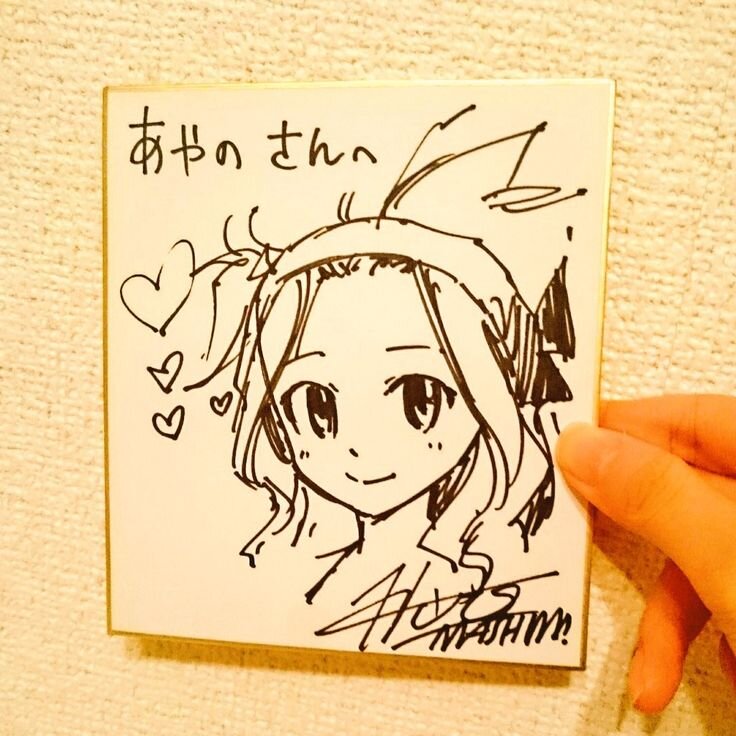 あやの さんへ
MASHIMA!